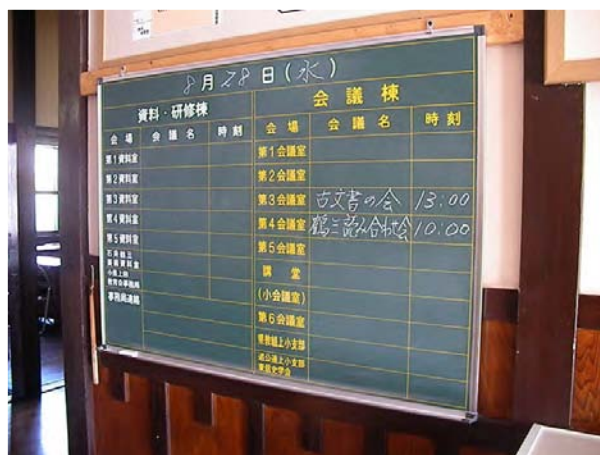 8月28日(水)
資料・研修棟
会場 会議名 時刻
第1資料室
第2資料室
第3資料室
第4資料室
第5資料室
事務局連絡
会議棟
会場 会議名 時刻
第1会議室
第2会議室
第3会議室 古文書の会 13:00
第4会議室 鶴三読み合わせ会 10:00
第5会議室
講堂
(小会議室)
第6会議室
県教組上小支部